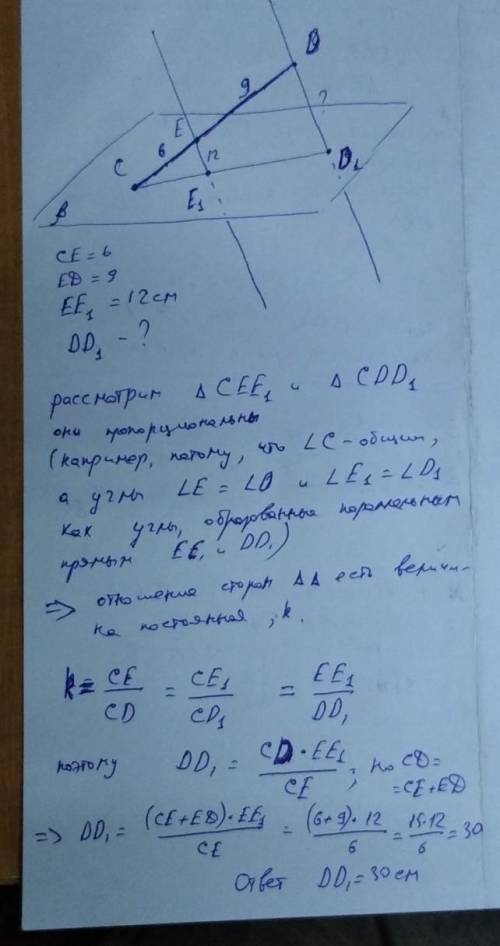 D
9
?
E
6
12
C
D₁
E₁
β
CE = 6
ED = 9
EE₁ = 12 см
DD₁ - ?
рассмотрим △ CEE₁ и △ CDD₁
они пропорциональны
(например, потому, что ∠C - общий,
а углы ∠E = ∠D и ∠E₁ = ∠D₁
как углы, образованные параллельным
прямым EE₁ и DD₁)
=> отношение сторон △△ есть величи-
на постоянная, k.
k = CE/CD = CE₁/CD₁ = EE₁/DD₁
поэтому DD₁ = CD·EE₁/CE ; но CD =
= CE + ED
=> DD₁ = (CE+ED)·EE₁/CE = (6+9)·12/6 = 15·12/6 = 30
Ответ DD₁ = 30 см